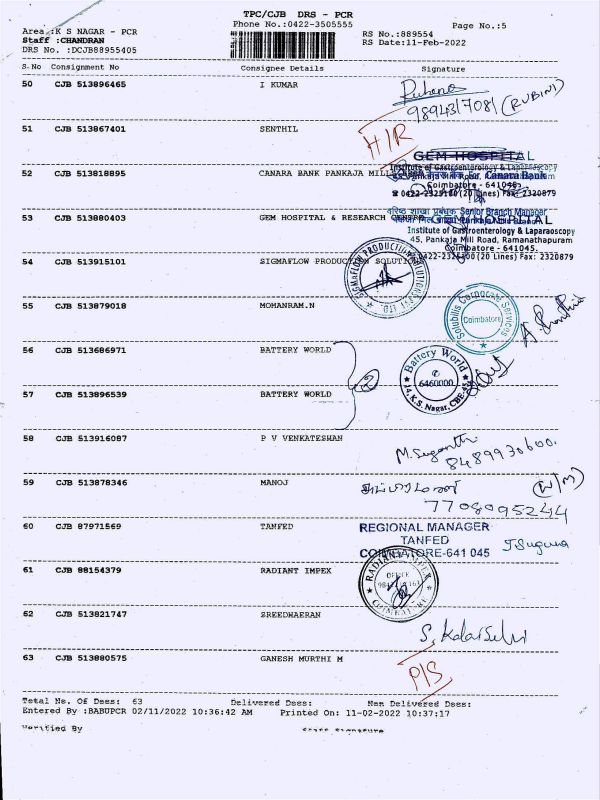 TPC/CJB DRS - PCR
Phone No.:0422-3505555
Page No.:5
Area :K S NAGAR - PCR
Staff :CHANDRAN
DRS No. :DCJB88955405
RS No.:889554
RS Date:11-Feb-2022
S.No Consignment No Consignee Details Signature
50 CJB 513896465 I KUMAR
9894317081 (RUBINI)
51 CJB 513867401 SENTHIL H/R
GEM HOSPITAL
Institute of Gastroenterology & Laparoscopy
52 CJB 513818895 CANARA BANK PANKAJA MILL
Canara Bank
Coimbatore - 641045
वरिष्ठ शाखा प्रबंधक Senior Branch Manager
53 CJB 513880403 GEM HOSPITAL & RESEARCH CENTRE
HOSPITAL
Institute of Gastroenterology & Laparaoscopy
45, Pankaja Mill Road, Ramanathapuram
Coimbatore - 641045.
0422-2325100 (20 Lines) Fax: 2320879
54 CJB 513915101 SIGMAFLOW PRODUCTION SOLUTIONS
SIGMAFLOW PRODUCTION SOLUTIONS
55 CJB 513879018 MOHANRAM.N
Solubilis Corporate Services
Coimbatore
56 CJB 513686971 BATTERY WORLD
Battery World
6460000
57 CJB 513896539 BATTERY WORLD
K.S. Nagar, CBE
58 CJB 513916087 P V VENKATESHAN
M.Suganthi
8489930600.
59 CJB 513878346 MANOJ
(W/M)
7708095244
60 CJB 87971569 TANFED
REGIONAL MANAGER
TANFED
COIMBATORE-641 045
J.Suguna
61 CJB 88154379 RADIANT IMPEX
RADIANT IMPEX
OFFICE
COIMBATORE
62 CJB 513821747 SREEDHAERAN
S. KalaiSelvi
63 CJB 513880575 GANESH MURTHI M
P/S
Total No. Of Docs: 63 Delivered Docs: Non Delivered Docs:
Entered By :BABUPCR 02/11/2022 10:36:42 AM Printed On: 11-02-2022 10:37:17
Verified By Staff Signature